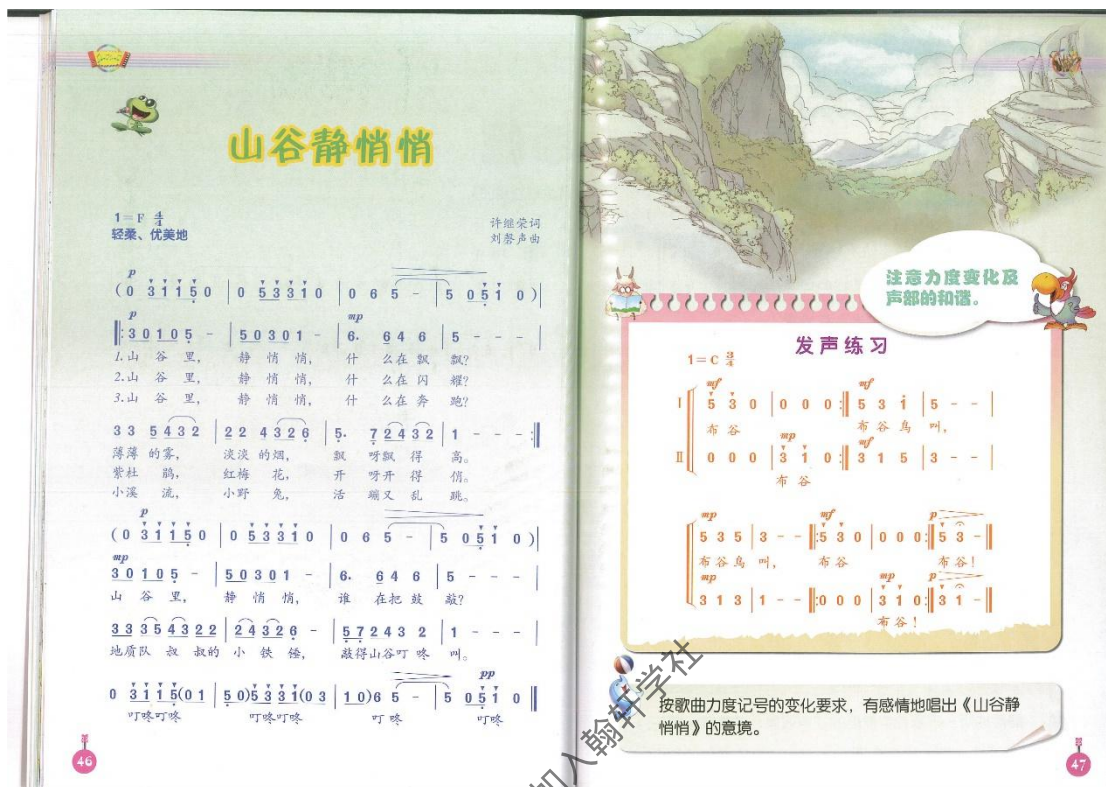 山谷静悄悄
1=F 4/4
轻柔、优美地
许继荣词
刘磬声曲
p
(0 3 1 1 5 0 | 0 5 3 3 1 0 | 0 6 5 - | 5 0 5 1 0 )|
p mp
‖:3 0 1 0 5 - | 5 0 3 0 1 - | 6. 6 4 6 | 5 - - - |
1.山 谷 里, 静 悄 悄, 什 么在 飘 飘?
2.山 谷 里, 静 悄 悄, 什 么在 闪 耀?
3.山 谷 里, 静 悄 悄, 什 么在 奔 跑?
3 3 5 4 3 2 | 2 2 4 3 2 6 | 5. 7 2 4 3 2 | 1 - - - :‖
薄薄 的雾, 淡淡 的烟, 飘 呀飘 得 高。
紫杜 鹃, 红梅 花, 开 呀开 得 俏。
小溪 流, 小野 兔, 活 蹦又 乱 跳。
p
(0 3 1 1 5 0 | 0 5 3 3 1 0 | 0 6 5 - | 5 0 5 1 0 )|
mp
3 0 1 0 5 - | 5 0 3 0 1 - | 6. 6 4 6 | 5 - - - |
山 谷 里, 静 悄 悄, 谁 在把 鼓 敲?
3 3 3 5 4 3 2 2 | 2 4 3 2 6 - | 5 7 2 4 3 2 | 1 - - - |
地质队 叔 叔的 小 铁 锤, 敲得山谷叮 咚 叫。
pp
0 3 1 1 5(0 1 | 5 0)5 3 3 1(0 3 | 1 0)6 5 - | 5 0 5 1 0 ‖
叮咚叮咚 叮咚叮咚 叮 咚 叮咚
46
注意力度变化及
声部的和谐。
发声练习
1=C 3/4
mf mf
Ⅰ 5 3 0 | 0 0 0 :‖ 5 3 1 | 5 - - |
布 谷 布 谷 鸟 叫,
mp mf
Ⅱ 0 0 0 | 3 1 0 :‖ 3 1 5 | 3 - - |
布 谷
mp mf p
5 3 5 | 3 - - ‖:5 3 0 | 0 0 0 :‖ 5 3 - ‖
布 谷 鸟 叫, 布 谷 布 谷!
mp mp p
3 1 3 | 1 - - ‖:0 0 0 | 3 1 0 :‖ 3 1 - ‖
布 谷!
按歌曲力度记号的变化要求，有感情地唱出《山谷静
悄悄》的意境。
47
加入翰轩学社